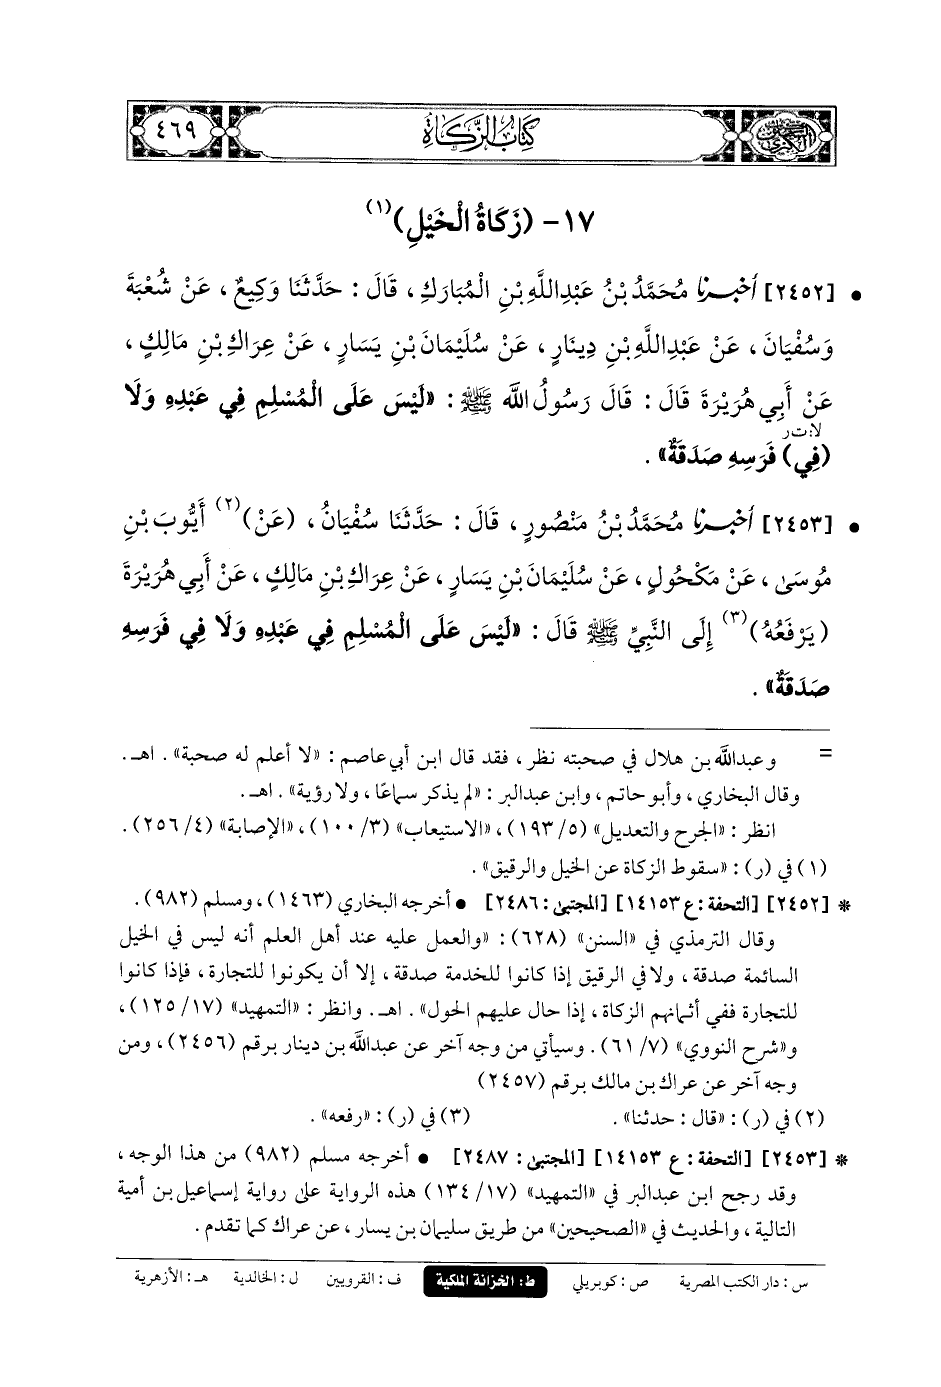 السنن الكبرى
كتاب الزكاة
٤٦٩
١٧- (زَكَاةُ الْخَيْلِ)(١)
• [٢٤٥٢] أخبرنا مُحَمَّدُ بْنُ عَبْدِاللَّهِ بْنِ الْمُبَارَكِ ، قَالَ : حَدَّثَنَا وَكِيعٌ ، عَنْ شُعْبَةَ
وَسُفْيَانَ ، عَنْ عَبْدِاللَّهِ بْنِ دِينَارٍ ، عَنْ سُلَيْمَانَ بْنِ يَسَارٍ ، عَنْ عِرَاكِ بْنِ مَالِكٍ ،
عَنْ أَبِي هُرَيْرَةَ قَالَ : قَالَ رَسُولُ اللَّه ﷺ : «لَيْسَ عَلَى الْمُسْلِمِ فِي عَبْدِهِ وَلَا
لا: ت ر
(فِي) فَرَسِهِ صَدَقَةٌ» .
• [٢٤٥٣] أخبرنا مُحَمَّدُ بْنُ مَنْصُورٍ ، قَالَ : حَدَّثَنَا سُفْيَانُ ، (عَنْ)(٢) أَيُّوبَ بْنِ
مُوسَىٰ ، عَنْ مَكْحُولٍ ، عَنْ سُلَيْمَانَ بْنِ يَسَارٍ ، عَنْ عِرَاكِ بْنِ مَالِكٍ ، عَنْ أَبِي هُرَيْرَةَ
(يَرْفَعُهُ)(٣) إِلَى النَّبِيِّ ﷺ قَالَ : «لَيْسَ عَلَى الْمُسْلِمِ فِي عَبْدِهِ وَلَا فِي فَرَسِهِ
صَدَقَةٌ» .
= وعبدالله بن هلال في صحبته نظر ، فقد قال ابن أبي عاصم : «لا أعلم له صحبة» . اهـ .
وقال البخاري ، وأبو حاتم ، وابن عبدالبر : «لم يذكر سماعًا ، ولا رؤية» . اهـ .
انظر : «الجرح والتعديل» (٥/ ١٩٣) ، «الاستيعاب» (٣/ ١٠٠) ، «الإصابة» (٤/ ٢٥٦) .
(١) في (ر) : «سقوط الزكاة عن الخيل والرقيق» .
* [٢٤٥٢] [التحفة : ع ١٤١٥٣] [المجتبى : ٢٤٨٦] • أخرجه البخاري (١٤٦٣) ، ومسلم (٩٨٢) .
وقال الترمذي في «السنن» (٦٢٨) : «والعمل عليه عند أهل العلم أنه ليس في الخيل
السائمة صدقة ، ولا في الرقيق إذا كانوا للخدمة صدقة ، إلا أن يكونوا للتجارة ، فإذا كانوا
للتجارة ففي أثمانهم الزكاة ، إذا حال عليهم الحول» . اهـ. وانظر : «التمهيد» (١٧/ ١٢٥) ،
و«شرح النووي» (٧/ ٦١) . وسيأتي من وجه آخر عن عبدالله بن دينار برقم (٢٤٥٦) ، ومن
وجه آخر عن عراك بن مالك برقم (٢٤٥٧)
(٢) في (ر) : «قال : حدثنا» . (٣) في (ر) : «رفعه» .
* [٢٤٥٣] [التحفة : ع ١٤١٥٣] [المجتبى : ٢٤٨٧] • أخرجه مسلم (٩٨٢) من هذا الوجه ،
وقد رجح ابن عبدالبر في «التمهيد» (١٧/ ١٣٤) هذه الرواية على رواية إسماعيل بن أمية
التالية ، والحديث في «الصحيحين» من طريق سليمان بن يسار ، عن عراك كما تقدم .
س : دار الكتب المصرية ص : كوبريلي ط : الخزانة الملكية ف : القرويين ل : الخالدية هـ : الأزهرية